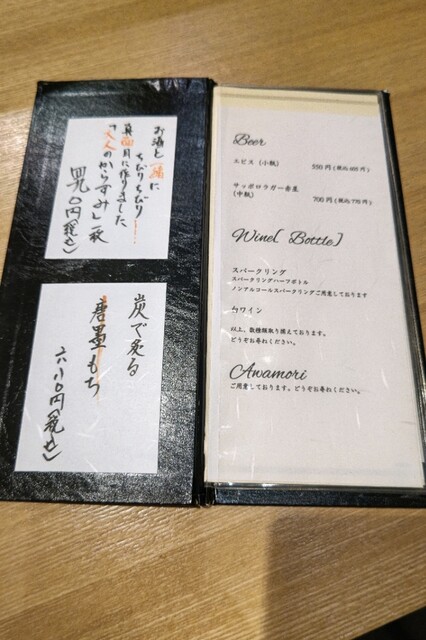 お酒と一緒に
ちびりちびり・・・
真面目に作りました
「大人のからすみ」一枚
四九〇円(税込)
炭で炙る
唐墨もち
六八〇円(税込)
Beer
エビス (小瓶) 550円 (税込605円)
サッポロラガー赤星
(中瓶) 700円 (税込770円)
Wine[ Bottle]
スパークリング
スパークリングハーフボトル
ノンアルコールスパークリングご用意しております
白ワイン
以上、数種類取り揃えております。
どうぞお尋ねください。
Awamori
ご用意しております。どうぞお尋ねください。